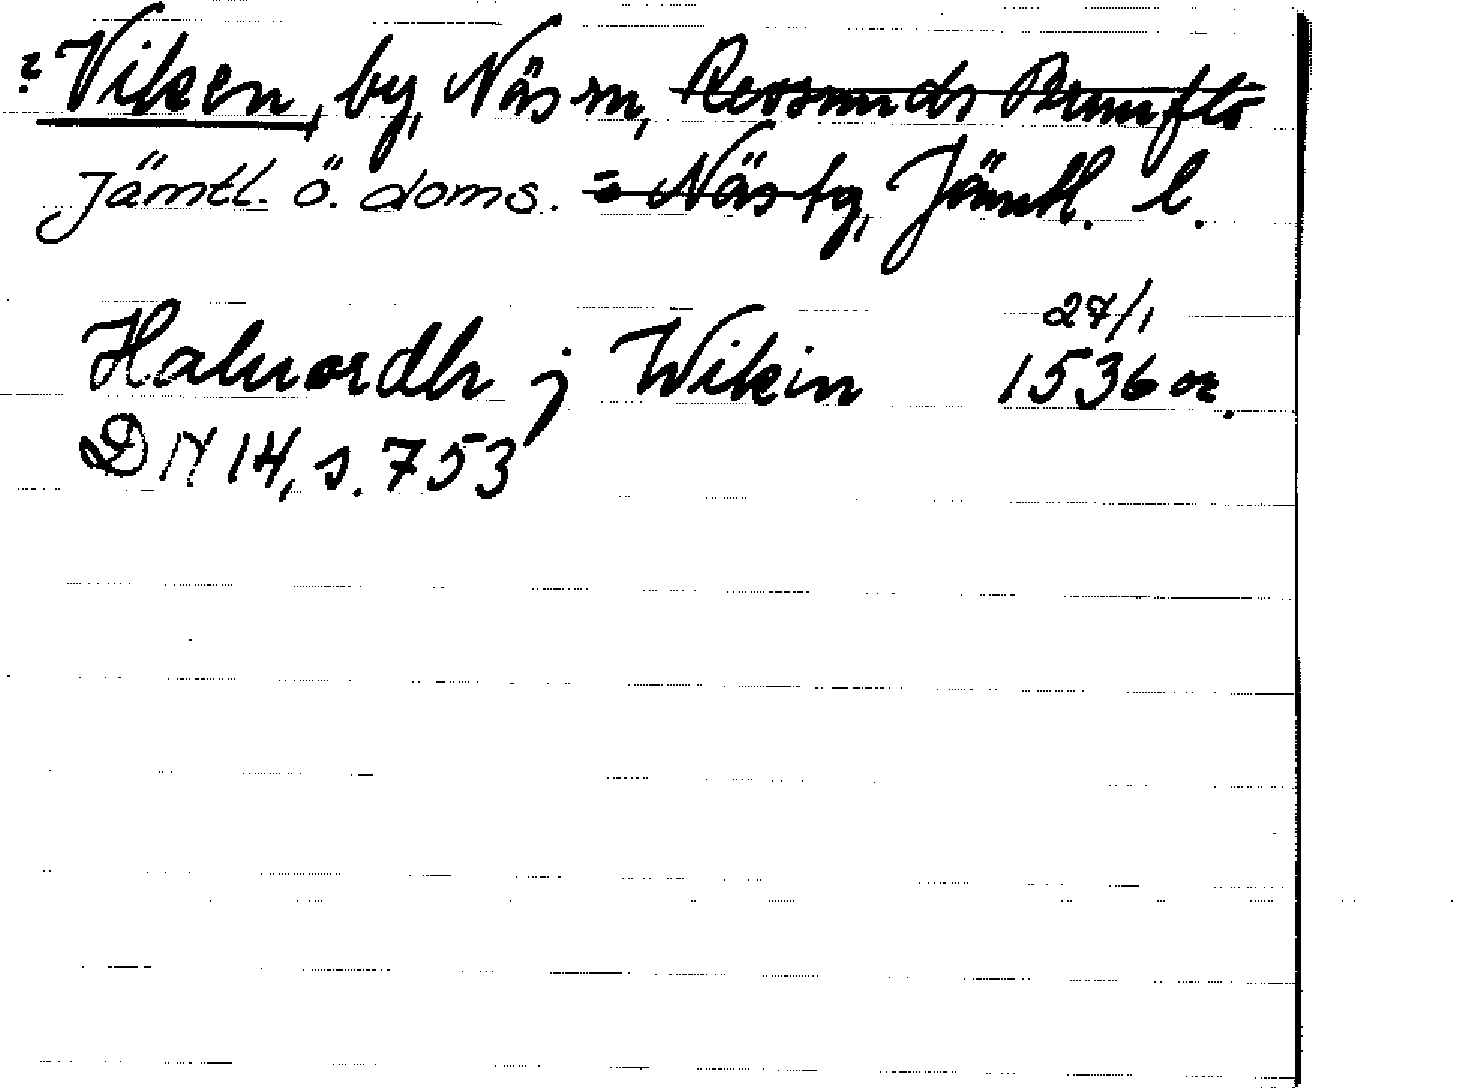 ? Viken, by, Näs sn, Revsunds Brunflo
Jämtl. ö. doms. = Näs tg, Jämtl. l.
27/1
Haluordh j Wikin 1536 or.
DN 14, s. 753